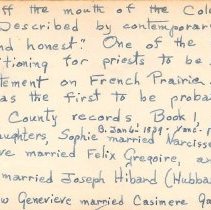 ff the mouth of the Colu
Described by contemporar
nd honest." One of the
tioning for priests to be
tement on French Prairie
as the first to be proba
County records, Book 1,
B. Jan 6 - 1839 - Vanc.
ughters, Sophie married Narcisse
ve married Felix Gregoire, an
married Joseph Hibard (Hubba
w Genevieve married Casimere Ga